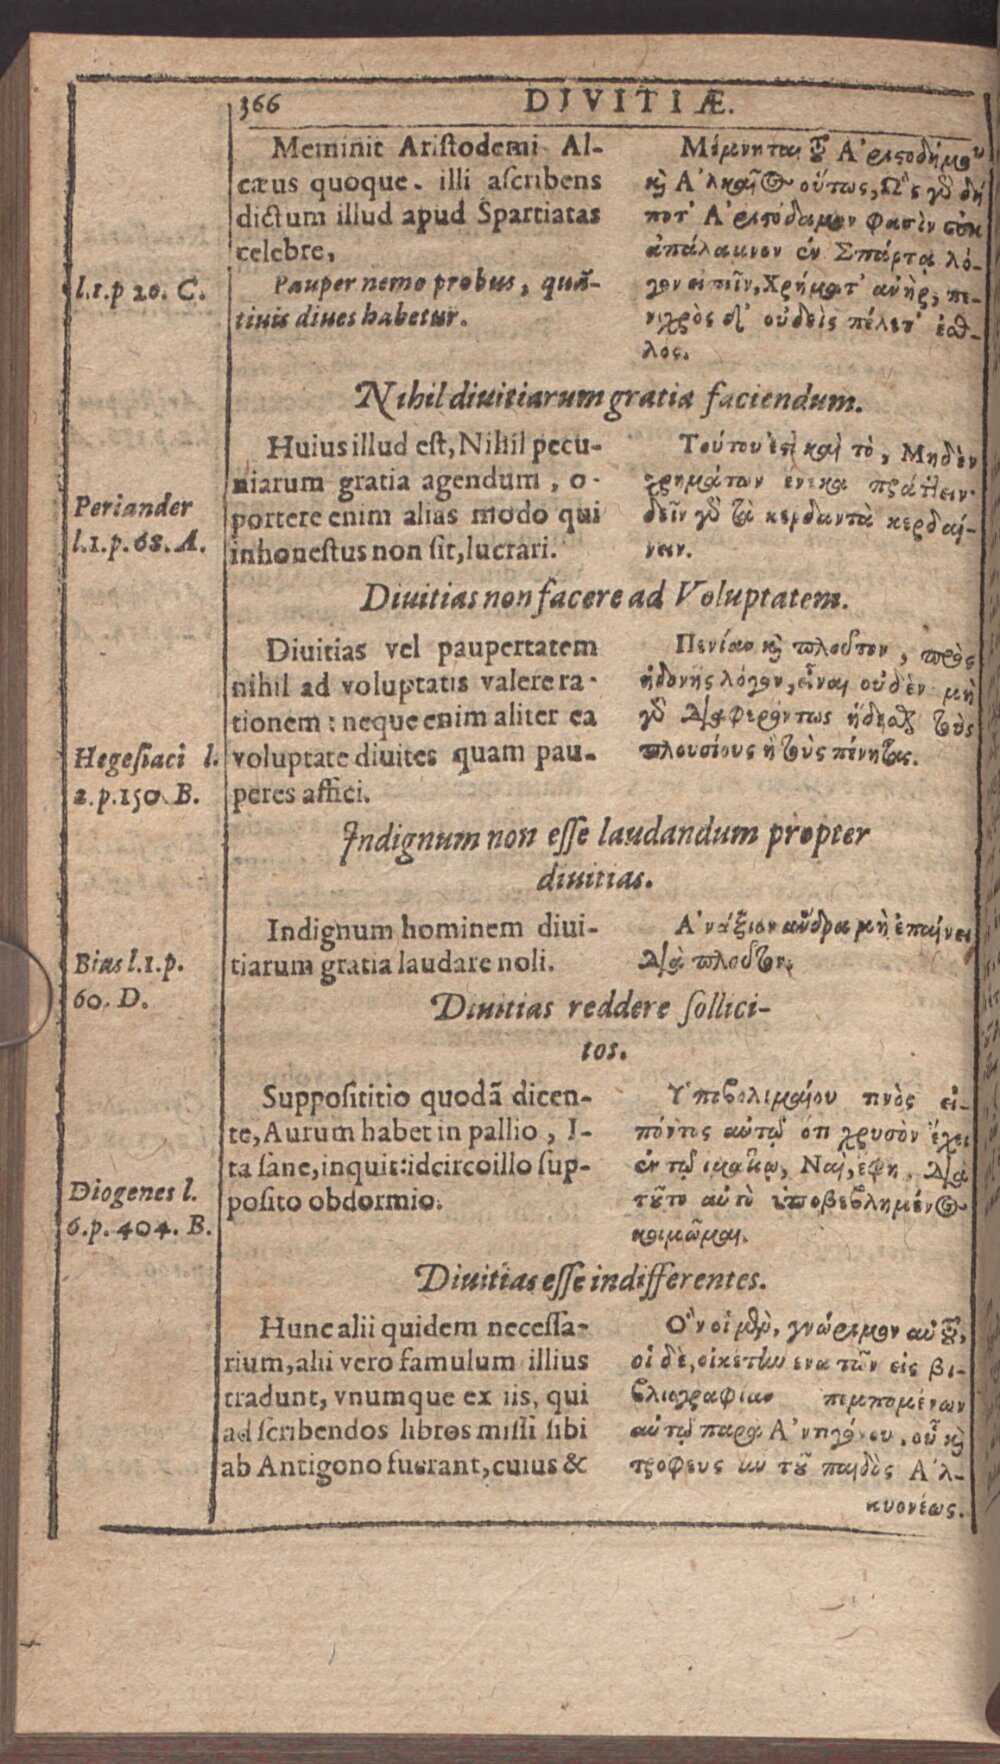 366
DIVITIÆ.
Meminit Aristodemi Al-
cæus quoque. illi ascribens
dictum illud apud Spartiatas
celebre,
Pauper nemo probus, quã-
tiuis diues habetur.
l.1.p 20. C.
Μέμνηται τοῦ Ἀριστοδήμου
καὶ Ἀλκαῖος οὕτως, Ὣς γὰρ δή
ποτ' Ἀριστόδαμον φασὶν οὐκ
ἀπάλαμνον ἐν Σπάρτα λό-
γον εἰπῖν, Χρήματ' ἀνὴρ, πε-
νιχρὸς δ' οὐδεὶς πέλετ' ἐσθ-
λος.
Nihil diuitiarum gratia faciendum.
Huius illud est, Nihil pecu-
niarum gratia agendum, o-
portere enim alias modo qui
inhonestus non sit, lucrari.
Periander
l.1.p.68. A.
Τούτου ἐστὶ καὶ τὸ, Μηδὲν
χρημάτων ἕνεκα πράττειν·
δεῖν γὰρ τὰ κερδαντὰ κερδαί-
νειν.
Diuitias non facere ad Voluptatem.
Diuitias vel paupertatem
nihil ad voluptatis valere ra-
tionem: neque enim aliter ea
voluptate diuites quam pau-
peres affici.
Hegesiaci l.
2.p.150. B.
Πενίαν καὶ πλοῦτον, πρὸς
ἡδονῆς λόγον, εἶναι οὐδὲν μὴ
γὰρ διαφερόντως ἥδεσθαι τοὺς
πλουσίους ἢ τοὺς πένητας.
Indignum non esse laudandum propter
diuitias.
Indignum hominem diui-
tiarum gratia laudare noli.
Bias l.1.p.
60. D.
Ἀνάξιον ἄνδρα μὴ ἐπαίνει
διὰ πλοῦτον.
Diuitias reddere sollici-
tos.
Supposititio quodã dicen-
te, Aurum habet in pallio, I-
ta sane, inquit: idcirco illo sup-
posito obdormio.
Diogenes l.
6.p.404. B.
Ὑποβολιμαίου τινὸς εἰ-
πόντος αὐτῷ ὅτι χρυσὸν ἔχει
ἐν τῷ ἱματίῳ, Ναὶ, ἔφη, διὰ
τοῦτο αὐτὸ ὑποβεβλημένος
κοιμῶμαι.
Diuitias esse indifferentes.
Hunc alii quidem necessa-
rium, alii vero famulum illius
tradunt, vnumque ex iis, qui
ad scribendos libros missi sibi
ab Antigono fuerant, cuius &
Ὃν οἱ μὲν, γνώριμον αὐτοῦ,
οἱ δὲ, οἰκέτην ἕνα τῶν εἰς βι-
βλιογραφίαν πεμπομένων
αὐτῷ παρὰ Ἀντιγόνου, οὗ καὶ
τροφεὺς ἦν τοῦ παιδὸς Ἀλ-
κυονέως.